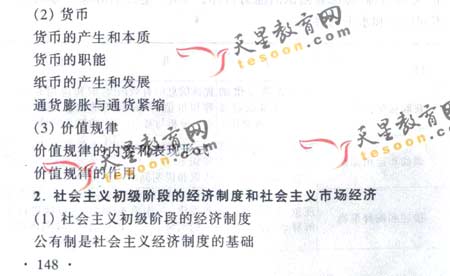 (2) 货币
货币的产生和本质
货币的职能
纸币的产生和发展
通货膨胀与通货紧缩
(3) 价值规律
价值规律的内容和表现形式
价值规律的作用
2. 社会主义初级阶段的经济制度和社会主义市场经济
(1) 社会主义初级阶段的经济制度
公有制是社会主义经济制度的基础
· 148 ·
天星教育网
tesoon.com
天星教育网
tesoon.com
天星教育网
tesoon.com